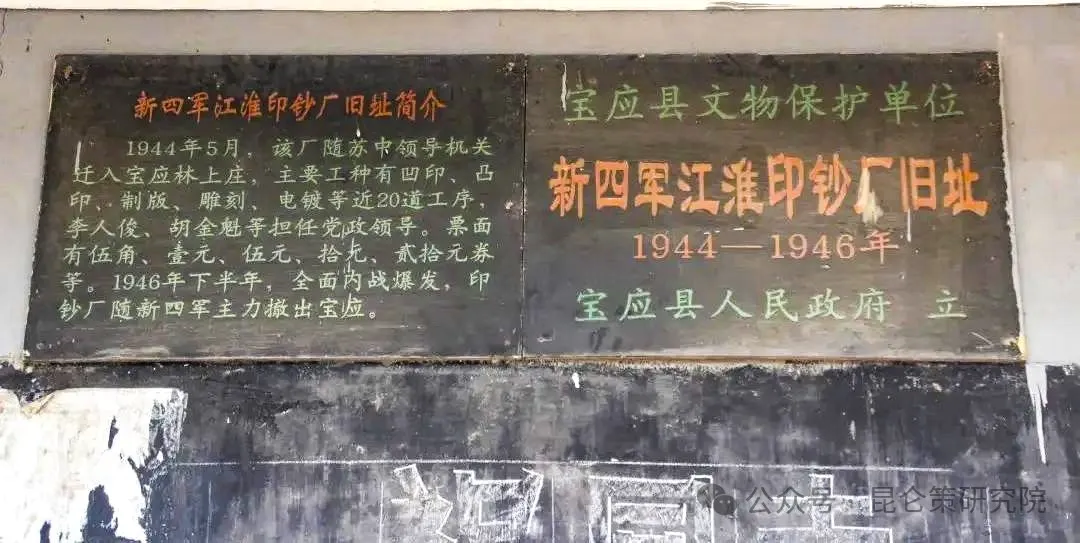 新四军江淮印钞厂旧址简介
1944年5月，该厂随苏中领导机关
迁入宝应林上庄，主要工种有凹印、凸
印、制版、雕刻、电镀等近20道工序，
李人俊、胡金魁等担任党政领导。票面
有伍角、壹元、伍元、拾元、贰拾元券
等。1946年下半年，全面内战爆发，印
钞厂随新四军主力撤出宝应。
宝应县文物保护单位
新四军江淮印钞厂旧址
1944—1946年
宝应县人民政府 立
公众号·昆仑策研究院